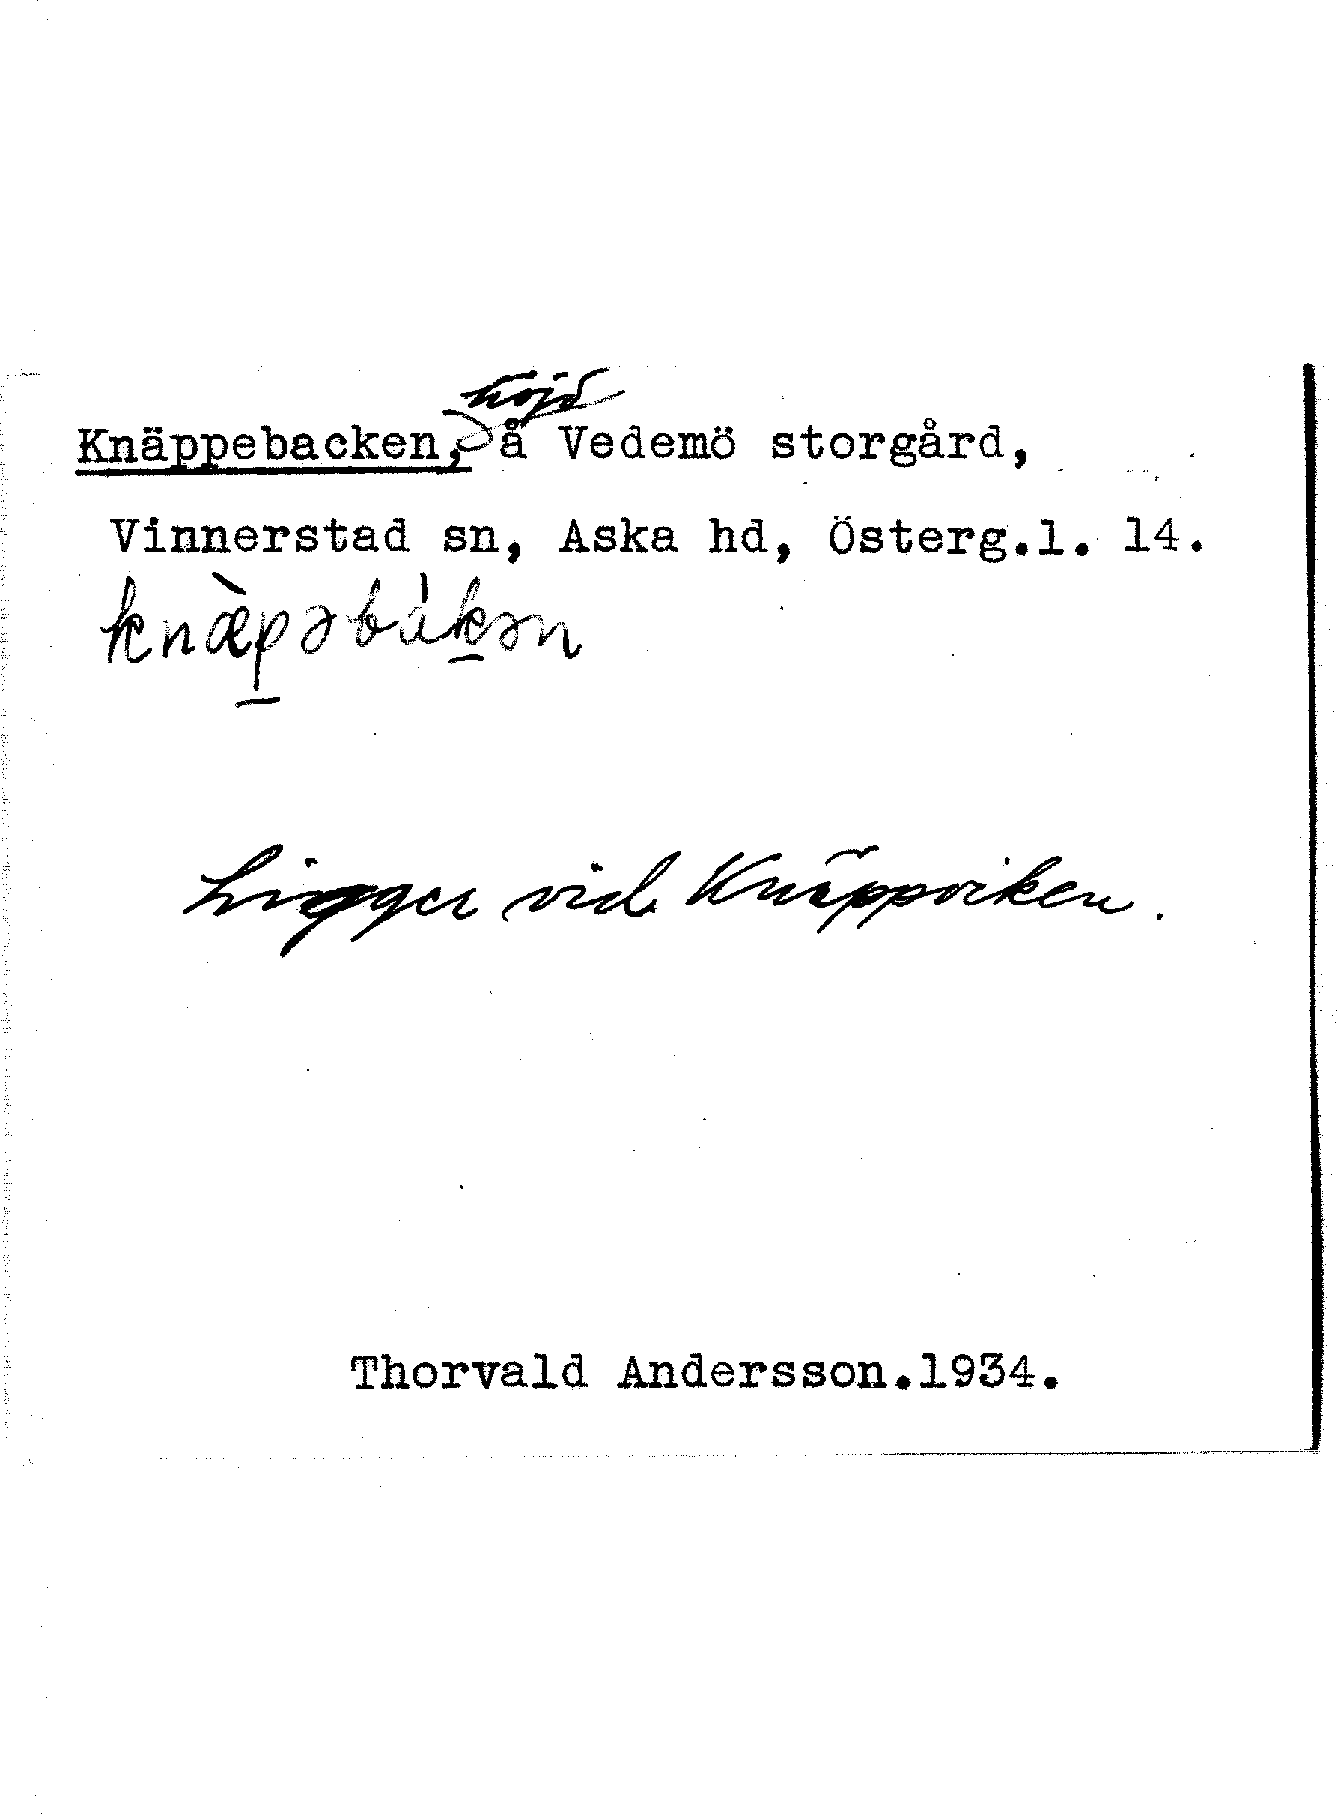 Knäppebacken, höjd å Vedemö storgård,
Vinnerstad sn, Aska hd, Österg.l. 14.
knæ̀pəbákən
Ligger vid Knäppviken.
Thorvald Andersson.1934.